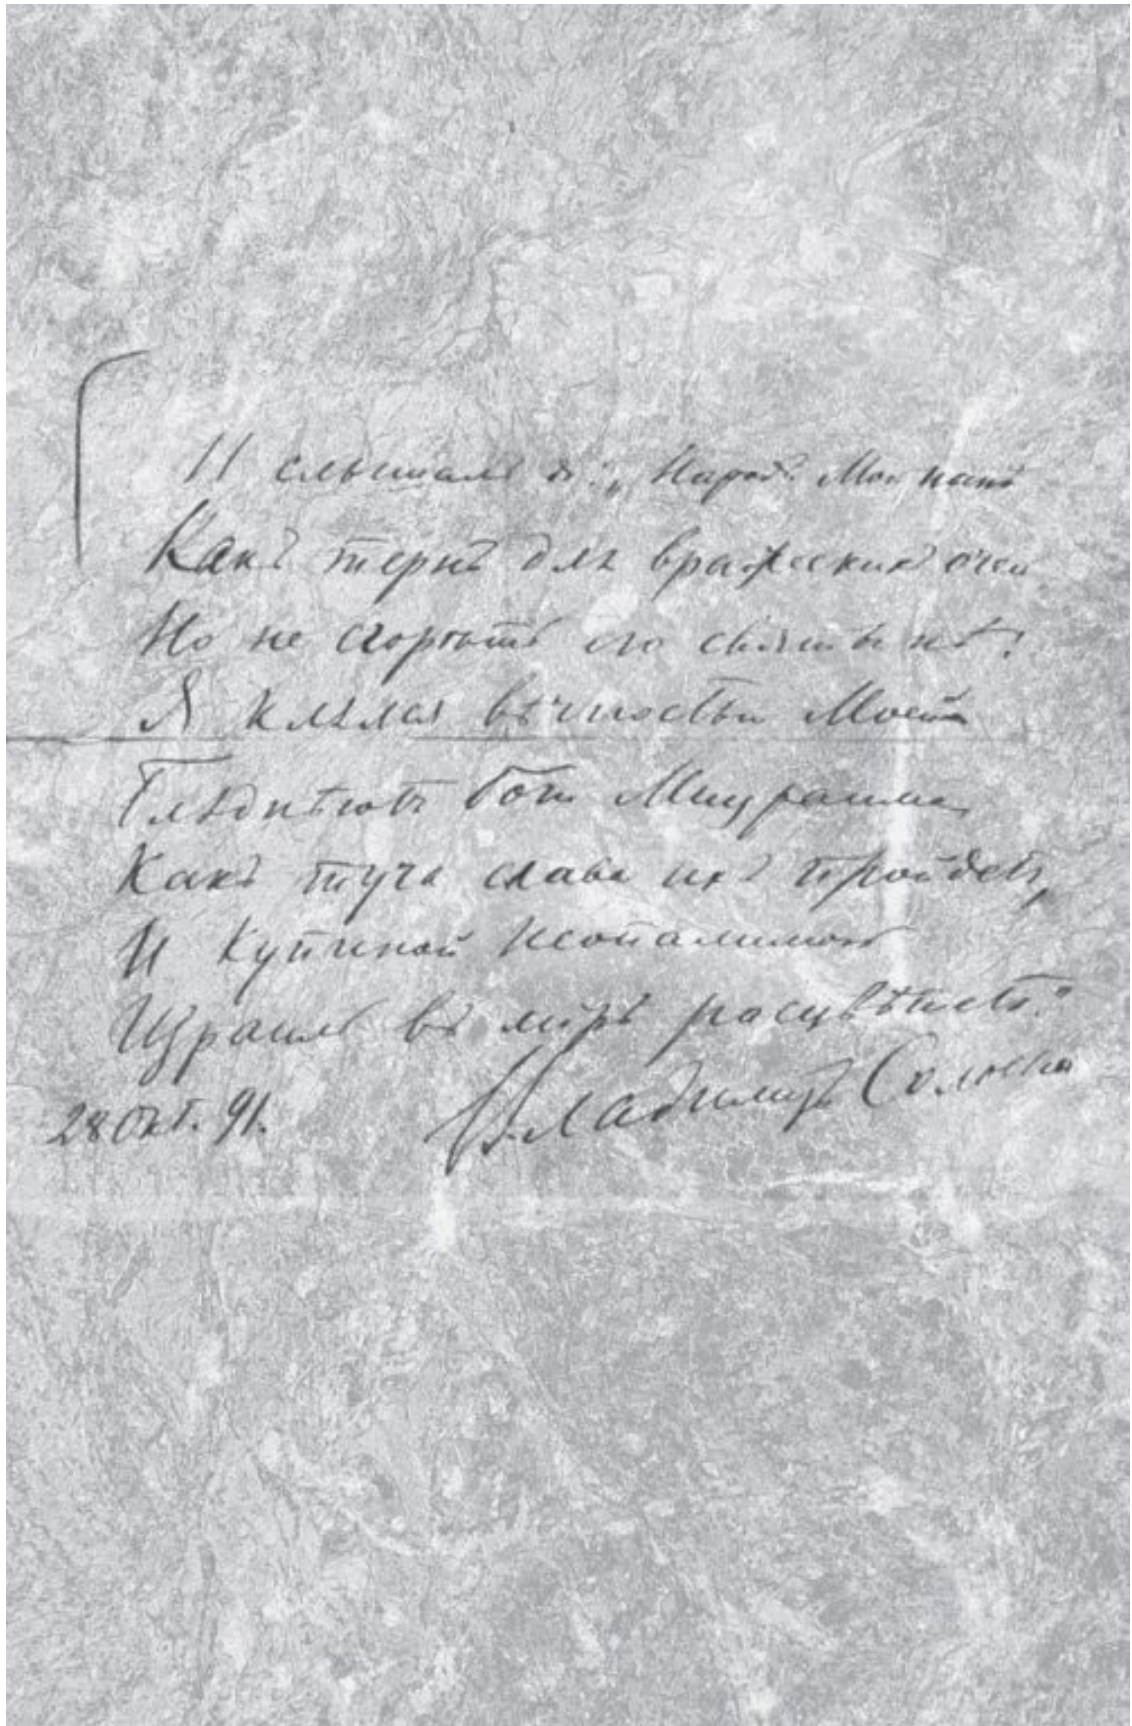 И слышалъ я: „Народъ Мой нынѣ
Какъ тернъ для вражескихъ очей
Но не сгорѣть его святынѣ:
Я клялся вѣчностью Моей
Блѣднѣютъ боги Мицраима
Какъ туча слава ихъ пройдетъ,
И Купиной Неопалимой
Израиль въ мірѣ расцвѣтетъ."
28 Окт. 91. Владиміръ Соловьевъ